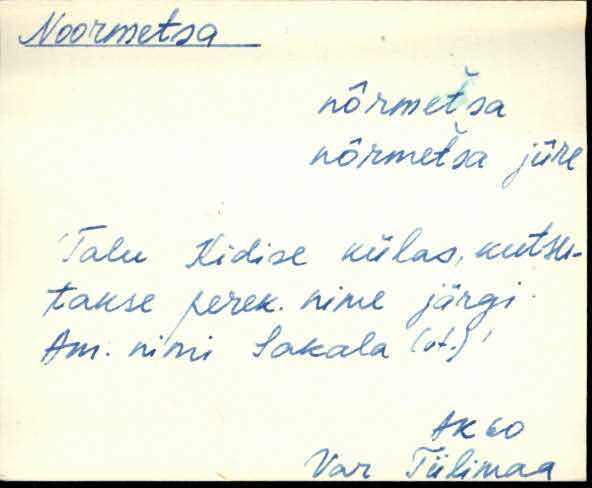 Noormetsa
nôrmet̆sa
nôrmet̆sa jûre
'Talu Kidise külas, kutsu-
takse perek. nime järgi.
Am. nimi Sakala (vt.)'
AK 60
Var Tiilimaa